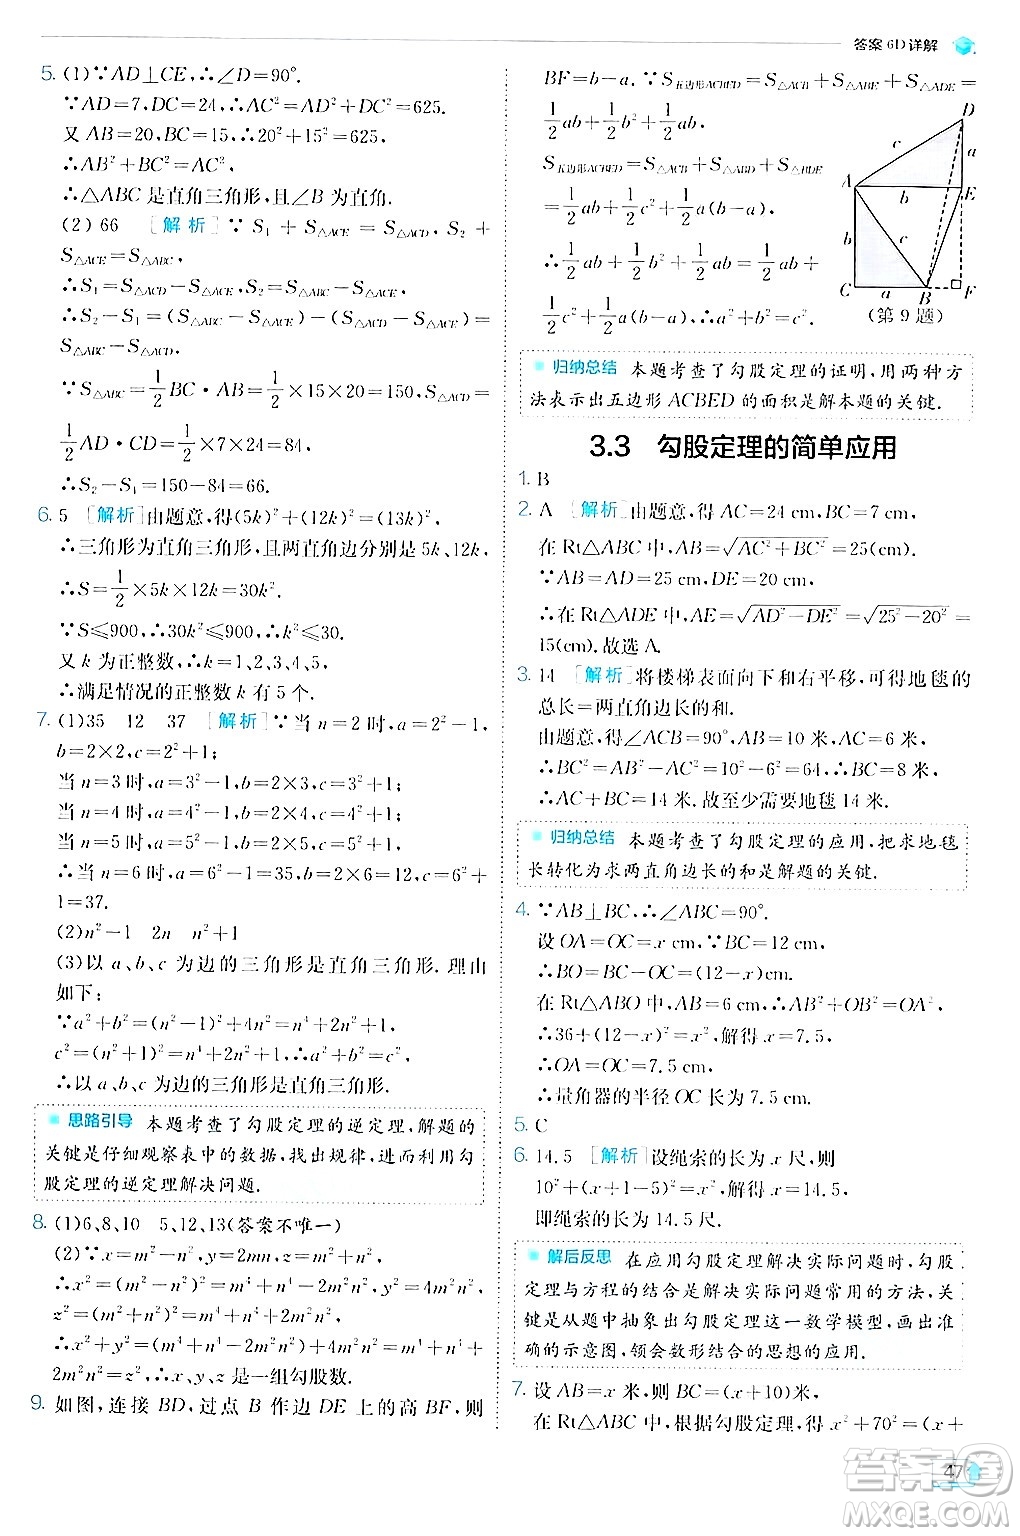 答案 6D 详解
5. (1)∵AD⊥CE,∴∠D=90°.
∵AD=7,DC=24,∴AC²=AD²+DC²=625.
又 AB=20,BC=15,∴20²+15²=625,
∴AB²+BC²=AC²,
∴△ABC 是直角三角形,且∠B 为直角.
(2) 66 [解析] ∵ S₁ + S△ACE = S△ACD, S₂ +
S△ACE=S△ABC,
∴S₁=S△ACD-S△ACE,S₂=S△ABC-S△ACE,
∴S₂-S₁=(S△ABC-S△ACE)-(S△ACD-S△ACE)=
S△ABC-S△ACD.
∵S△ABC=1/2BC·AB=1/2×15×20=150,S△ACD=
1/2AD·CD=1/2×7×24=84,
∴S₂-S₁=150-84=66.
6. 5 [解析]由题意,得(5k)²+(12k)²=(13k)²,
∴三角形为直角三角形,且两直角边分别是 5k、12k,
∴S=1/2×5k×12k=30k².
∵S≤900,∴30k²≤900,∴k²≤30.
又 k 为正整数,∴k=1、2、3、4、5,
∴满足情况的正整数 k 有 5 个.
7. (1)35 12 37 [解析]∵当 n=2 时,a=2²-1,
b=2×2,c=2²+1;
当 n=3 时,a=3²-1,b=2×3,c=3²+1;
当 n=4 时,a=4²-1,b=2×4,c=4²+1;
当 n=5 时,a=5²-1,b=2×5,c=5²+1,
∴当 n=6 时,a=6²-1=35,b=2×6=12,c=6²+
1=37.
(2)n²-1 2n n²+1
(3)以 a、b、c 为边的三角形是直角三角形. 理由
如下:
∵a²+b²=(n²-1)²+4n²=n⁴+2n²+1,
c²=(n²+1)²=n⁴+2n²+1,∴a²+b²=c²,
∴以 a、b、c 为边的三角形是直角三角形.
思路引导 本题考查了勾股定理的逆定理,解题的
关键是仔细观察表中的数据,找出规律,进而利用勾
股定理的逆定理解决问题.
8. (1)6,8,10 5,12,13(答案不唯一)
(2)∵x=m²-n²,y=2mn,z=m²+n²,
∴x²=(m²-n²)²=m⁴+n⁴-2m²n²,y²=4m²n²,
z²=(m²+n²)²=m⁴+n⁴+2m²n²,
∴x²+y²=(m⁴+n⁴-2m²n²)+4m²n²=m⁴+n⁴+
2m²n²=z²,∴x、y、z 是一组勾股数.
9. 如图,连接 BD,过点 B 作边 DE 上的高 BF,则
BF=b-a. ∵S五边形ACBED=S△ACB+S△ABE+S△ADE=
1/2ab+1/2b²+1/2ab,
S五边形ACBED=S△ACB+S△ABD+S△BDE
=1/2ab+1/2c²+1/2a(b-a),
∴1/2ab+1/2b²+1/2ab=1/2ab+
1/2c²+1/2a(b-a),∴a²+b²=c².
D
a
c
A
b
E
b
c
C
a
B
F
(第 9 题)
归纳总结 本题考查了勾股定理的证明,用两种方
法表示出五边形 ACBED 的面积是解本题的关键.
3.3 勾股定理的简单应用
1. B
2. A [解析]由题意,得 AC=24 cm,BC=7 cm,
在 Rt△ABC 中,AB=√(AC²+BC²)=25(cm).
∵AB=AD=25 cm,DE=20 cm,
∴在 Rt△ADE 中,AE=√(AD²-DE²)=√(25²-20²)=
15(cm).故选 A.
3. 14 [解析]将楼梯表面向下和右平移,可得地毯的
总长=两直角边的和.
由题意,得∠ACB=90°,AB=10 米,AC=6 米,
∴BC²=AB²-AC²=10²-6²=64,∴BC=8 米,
∴AC+BC=14 米.故至少需要地毯 14 米.
归纳总结 本题考查了勾股定理的应用,把求地毯
长转化为求两直角边长的和是解题的关键.
4. ∵AB⊥BC,∴∠ABC=90°.
设 OA=OC=x cm,∵BC=12 cm,
∴BO=BC-OC=(12-x)cm,
在 Rt△ABO 中,AB=6 cm,AB²+OB²=OA²,
∴36+(12-x)²=x²,解得 x=7.5,
∴OA=OC=7.5 cm,
∴量角器的半径 OC 长为 7.5 cm.
5. C
6. 14.5 [解析]设绳索的长为 x 尺,则
10²+(x+1-5)²=x²,解得 x=14.5,
即绳索的长为 14.5 尺.
解后反思 在应用勾股定理解决实际问题时,勾股
定理与方程的结合是解决实际问题常用的方法,关
键是从题中抽象出勾股定理这一数学模型,画出准
确的示意图,领会数形结合的思想的应用.
7. 设 AC=x 米,则 BC=(x+10)米,
在 Rt△ABC 中,根据勾股定理,得 x²+70²=(x+
47
答案圈
MXQE.COM